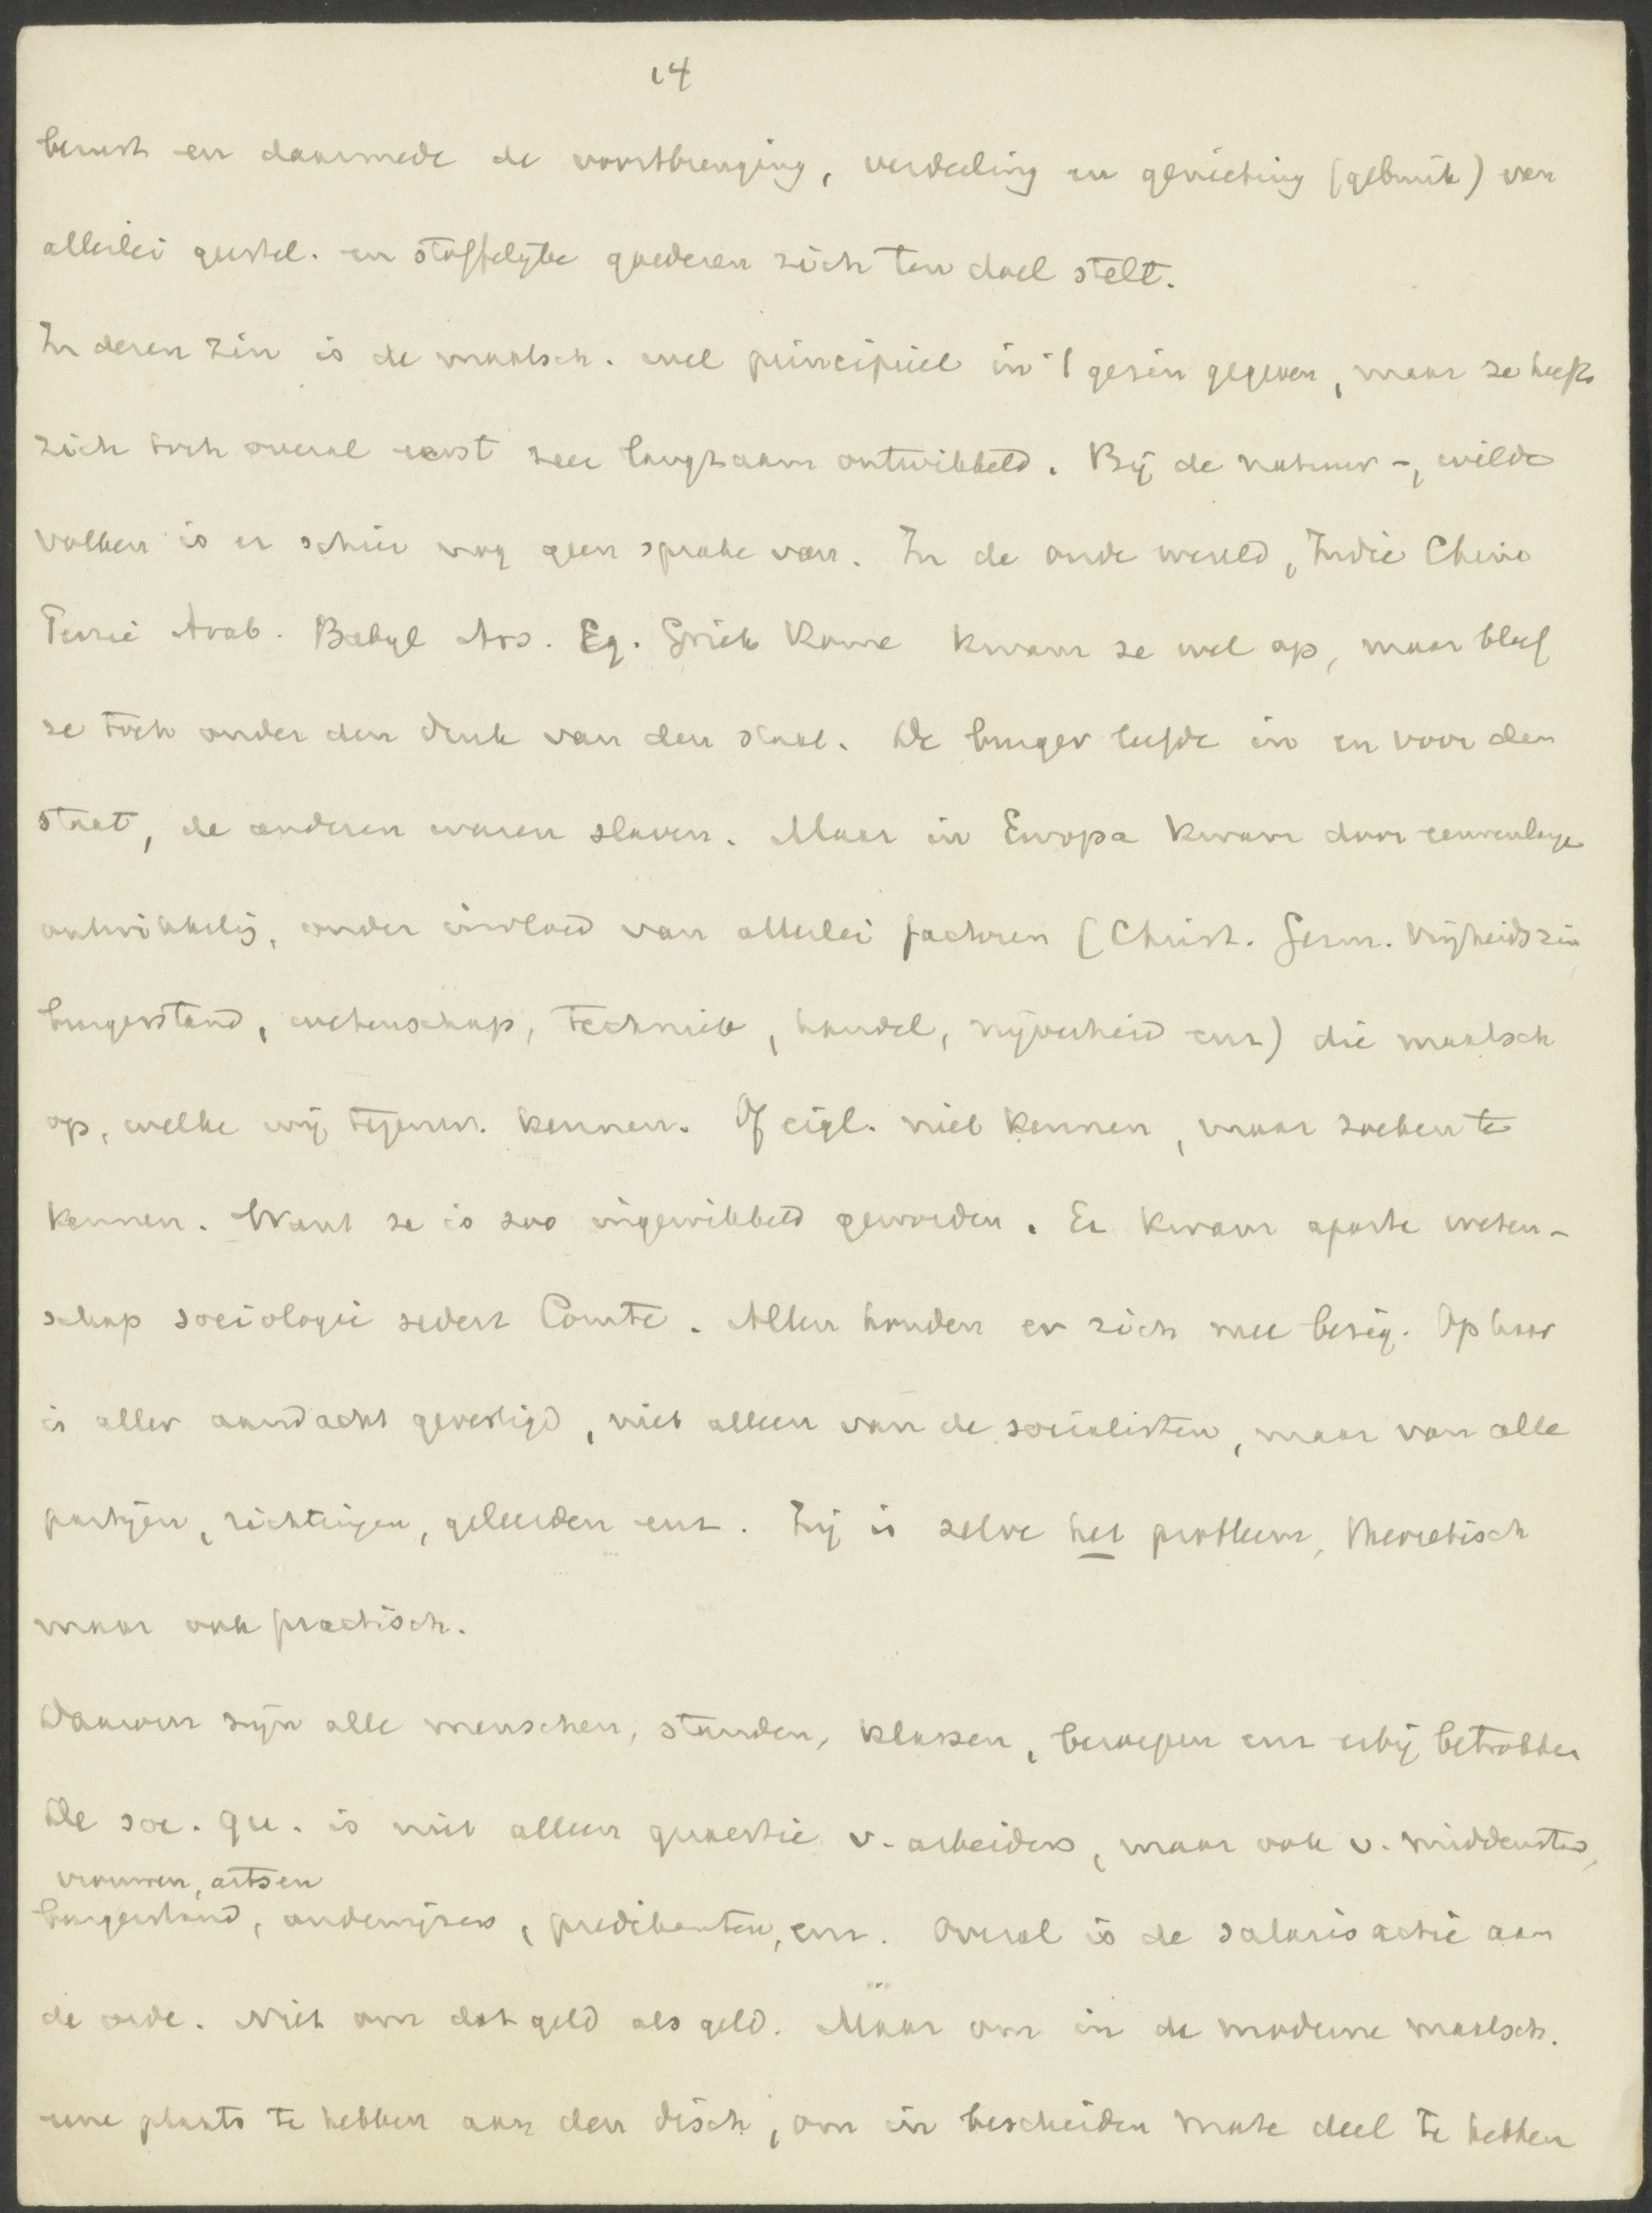 14
berust en daarmede de voortbrenging, verdeeling en genieting (gebruik) van
allerlei geestel. en stoffelijke goederen zich ten doel stelt.
In dezen zin is de maatsch. wel principieel in 't gezin gegeven, maar ze heeft
zich toch overal eerst zeer langzaam ontwikkeld. Bij de natuur-, wilde
volken is er schier nog geen sprake van. In de oude wereld, Indië China
Perzië Arab. Babyl Ass. Eg. Griek Rome kwam ze wel op, maar bleef
ze toch onder den druk van den staat. De burger leefde in en voor den
staat, de anderen waren slaven. Maar in Europa kwam door eeuwenlange
ontwikkelig, onder invloed van allerlei factoren (Christ. Germ. vrijheidszin
burgerstand, wetenschap, techniek, handel, nijverheid enz) die maatsch
op, welke wij tegenw. kennen. Of eigl. niet kennen, maar zoeken te
kennen. Want ze is zoo ingewikkeld geworden. Er kwam aparte weten-
schap sociologie sedert Comte. Allen houden er zich mee bezig. Op haar
is aller aandacht gevestigd, niet alleen van de socialisten, maar van alle
partijen, richtingen, geleerden enz. Zij is zelve het probleem, theoretisch
maar ook practisch.
Daarom zijn alle menschen, standen, klassen, beroepen enz erbij betrokken
De soc. qu. is niet alleen quaestie v. arbeiders, maar ook v. middenstd,
vrouwen, artsen
burgerstand, onderwijzers, predikanten, enz. Overal is de salarisactie aan
de orde. Niet om dat geld als geld. Maar om in de moderne maatsch.
eene plaats te hebben aan den disch, om in bescheiden mate deel te hebben